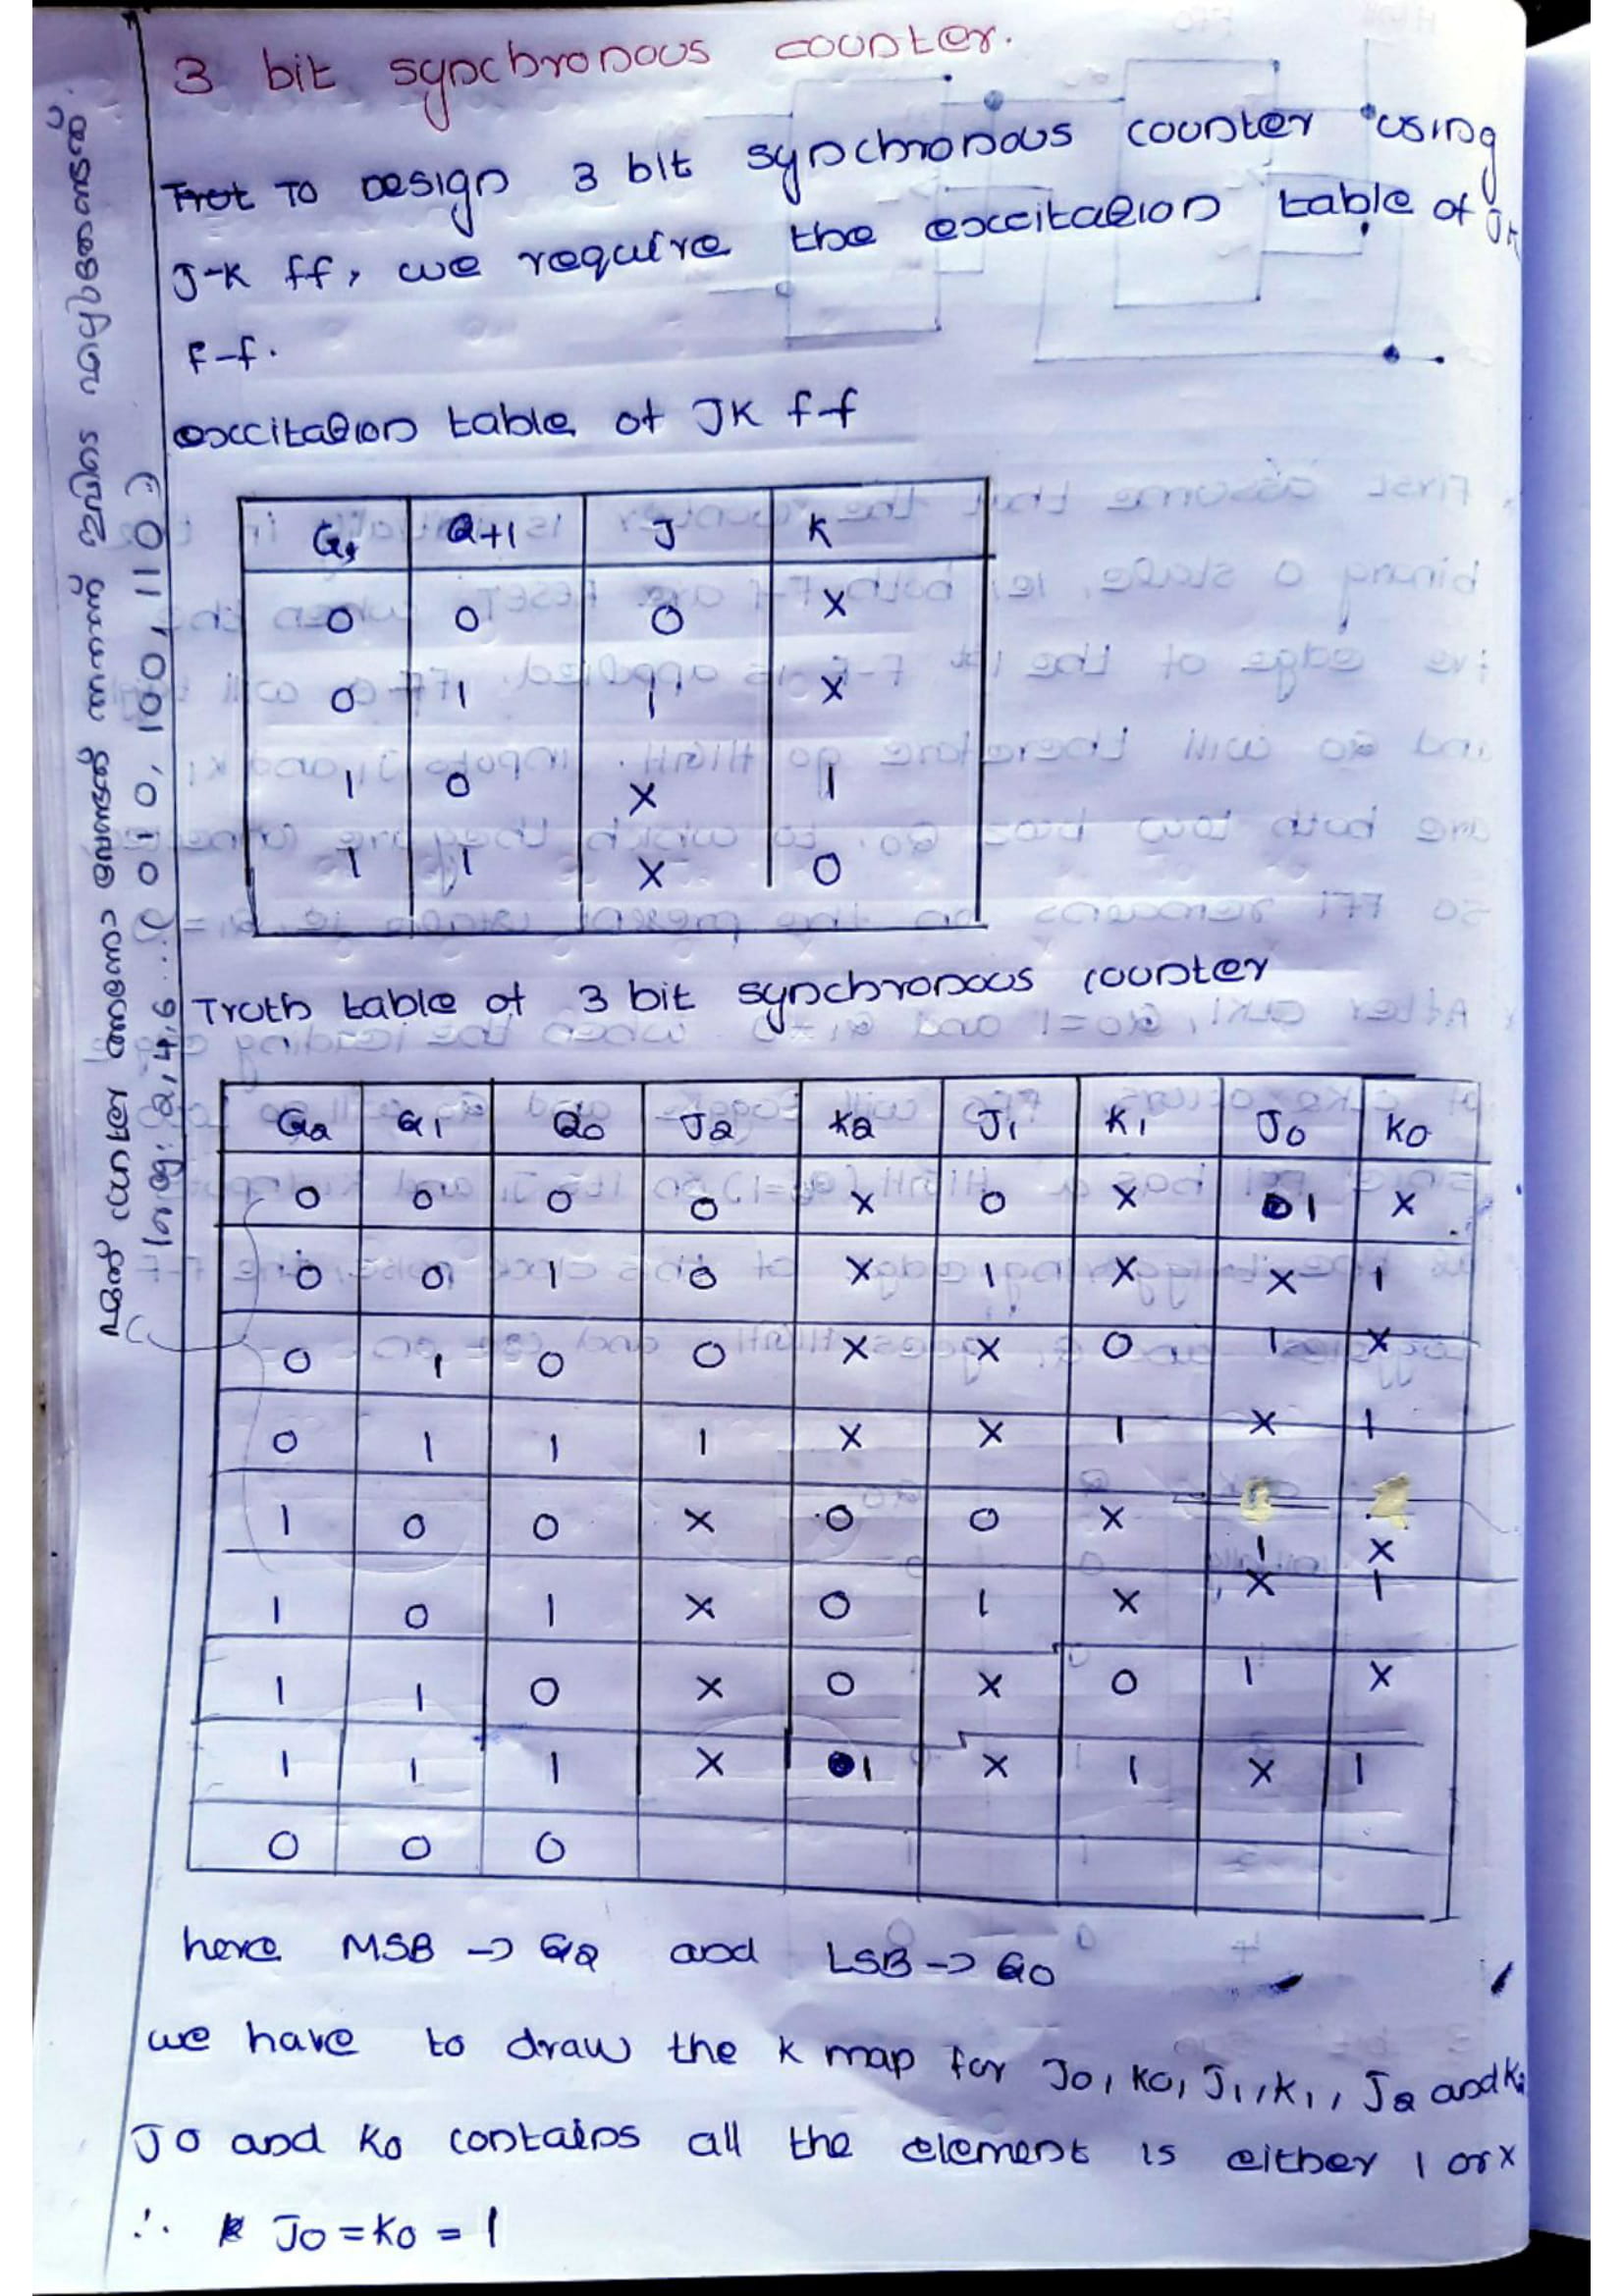 3 bit synchronous counter.
To Design 3 bit synchronous counter using
J-K ff, we require the excitation table of JK
F-f.
excitation table of JK f-f
Q+ Q+1 J K
0 0 0 X
0 1 1 X
1 0 X 1
1 1 X 0
Truth table of 3 bit synchronous counter
Q2 Q1 Q0 J2 K2 J1 K1 J0 K0
0 0 0 0 X 0 X 1 X
0 0 1 0 X 1 X X 1
0 1 0 0 X X 0 1 X
0 1 1 1 X X 1 X 1
1 0 0 X 0 0 X 1 X
1 0 1 X 0 1 X X 1
1 1 0 X 0 X 0 1 X
1 1 1 X 1 X 1 X 1
0 0 0
here MSB -> Q2 and LSB -> Q0
we have to draw the k map for J0, K0, J1, K1, J2 and K2
J0 and K0 contains all the element is either 1 or x
∴ J0 = K0 = 1
counter
2,4,6 .... 010, 100, 110 :)